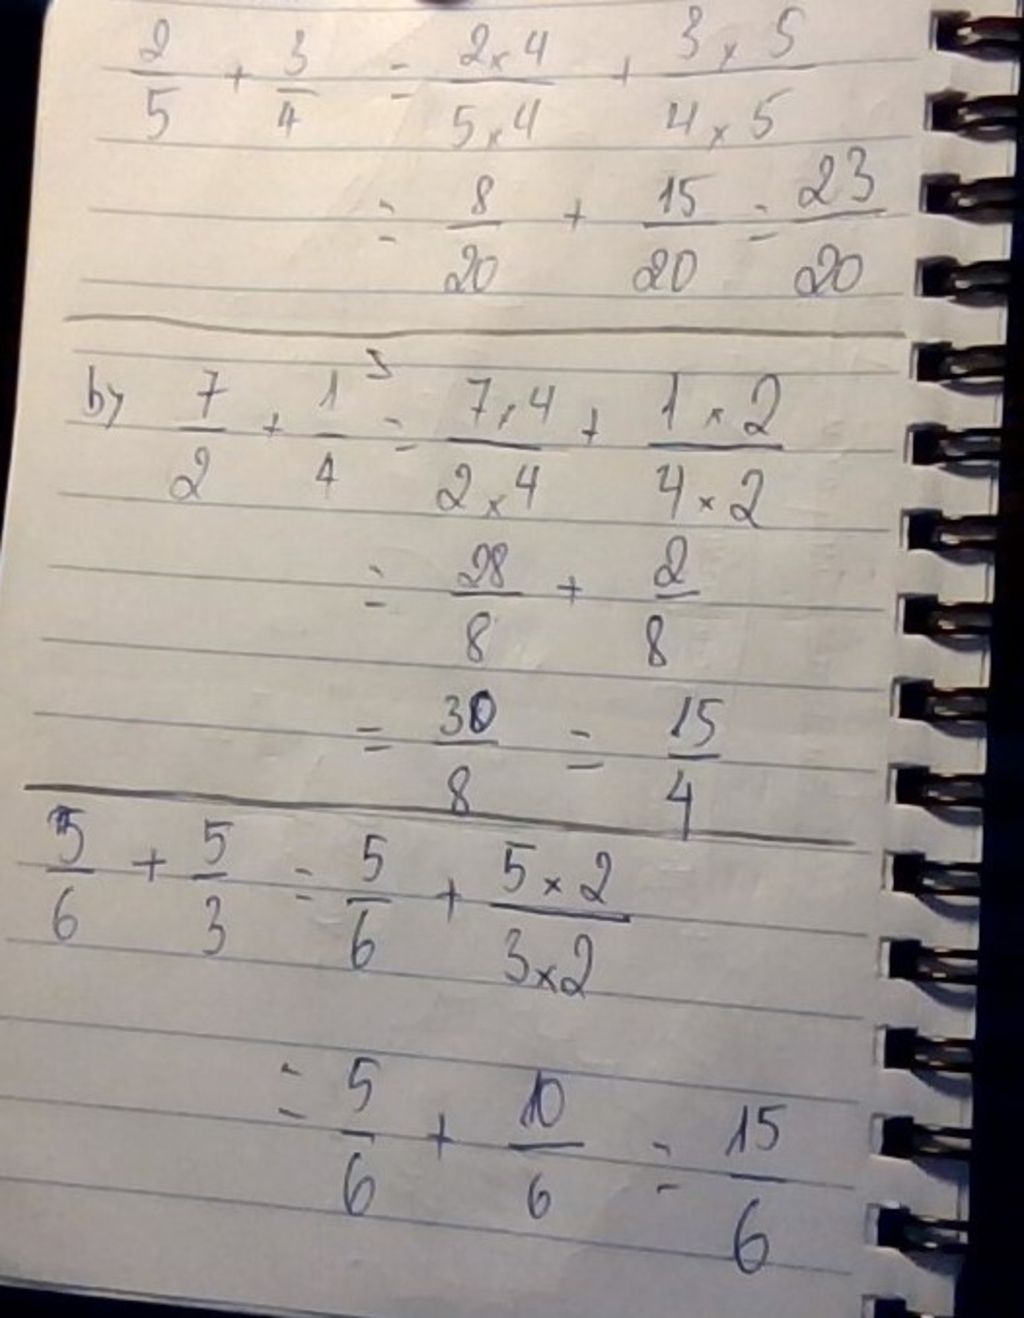 2/5 + 3/4 = 2×4/5×4 + 3×5/4×5
= 8/20 + 15/20 = 23/20
b) 7/2 + 1/4 = 7×4/2×4 + 1×2/4×2
= 28/8 + 2/8
= 30/8 = 15/4
5/6 + 5/3 = 5/6 + 5×2/3×2
= 5/6 + 10/6 = 15/6